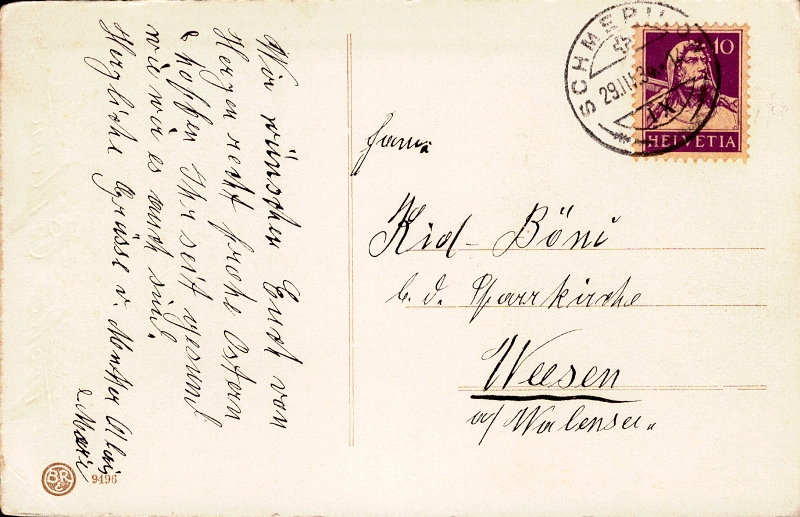 Wir wünschen Euch von
Herzen recht frohe Ostern
& hoffen Ihr seit gesund
wie wir es auch sind.
Herzliche Grüsse v. Mutter
& Mari
SCHMERIKON
29.III.3
10
HELVETIA
Fam.
Kid- Böni
b. d. Pfarrkirche
Weesen
a/ Walensee.
BR
9496